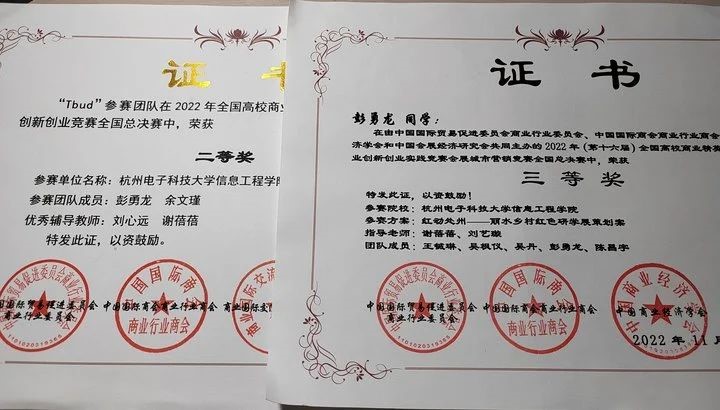 证
“Tbud”参赛团队在2022年全国高校商业
创新创业竞赛全国总决赛中，荣获
二等奖
参赛单位名称：杭州电子科技大学信息工程学院
参赛团队成员：彭勇龙 余文瑾
优秀辅导教师：刘心远 谢蓓蓓
特发此证，以资鼓励。
中国国际贸易促进委员会 中国国际商会商业行业商会
商业行业委员会
证书
彭勇龙 同学：
在由中国国际贸易促进委员会商业行业委员会、中国国际商会商业行业商会
济学会和中国会展经济研究会共同主办的2022年（第十六届）全国高校商业精英
业创新创业实践竞赛会展城市营销竞赛全国总决赛中，荣获
三等奖
特发此证，以资鼓励！
参赛院校：杭州电子科技大学信息工程学院
参赛方案：红动处州——丽水乡村红色研学展策划案
指导老师：谢蓓蓓、刘艺璇
团队成员：王毓琳、吴枫仪、吴丹、彭勇龙、陈昌宇
中国国际贸易促进委员会 中国国际商会商业行业商会 中国商业经济学会
商业行业委员会
2022年11月